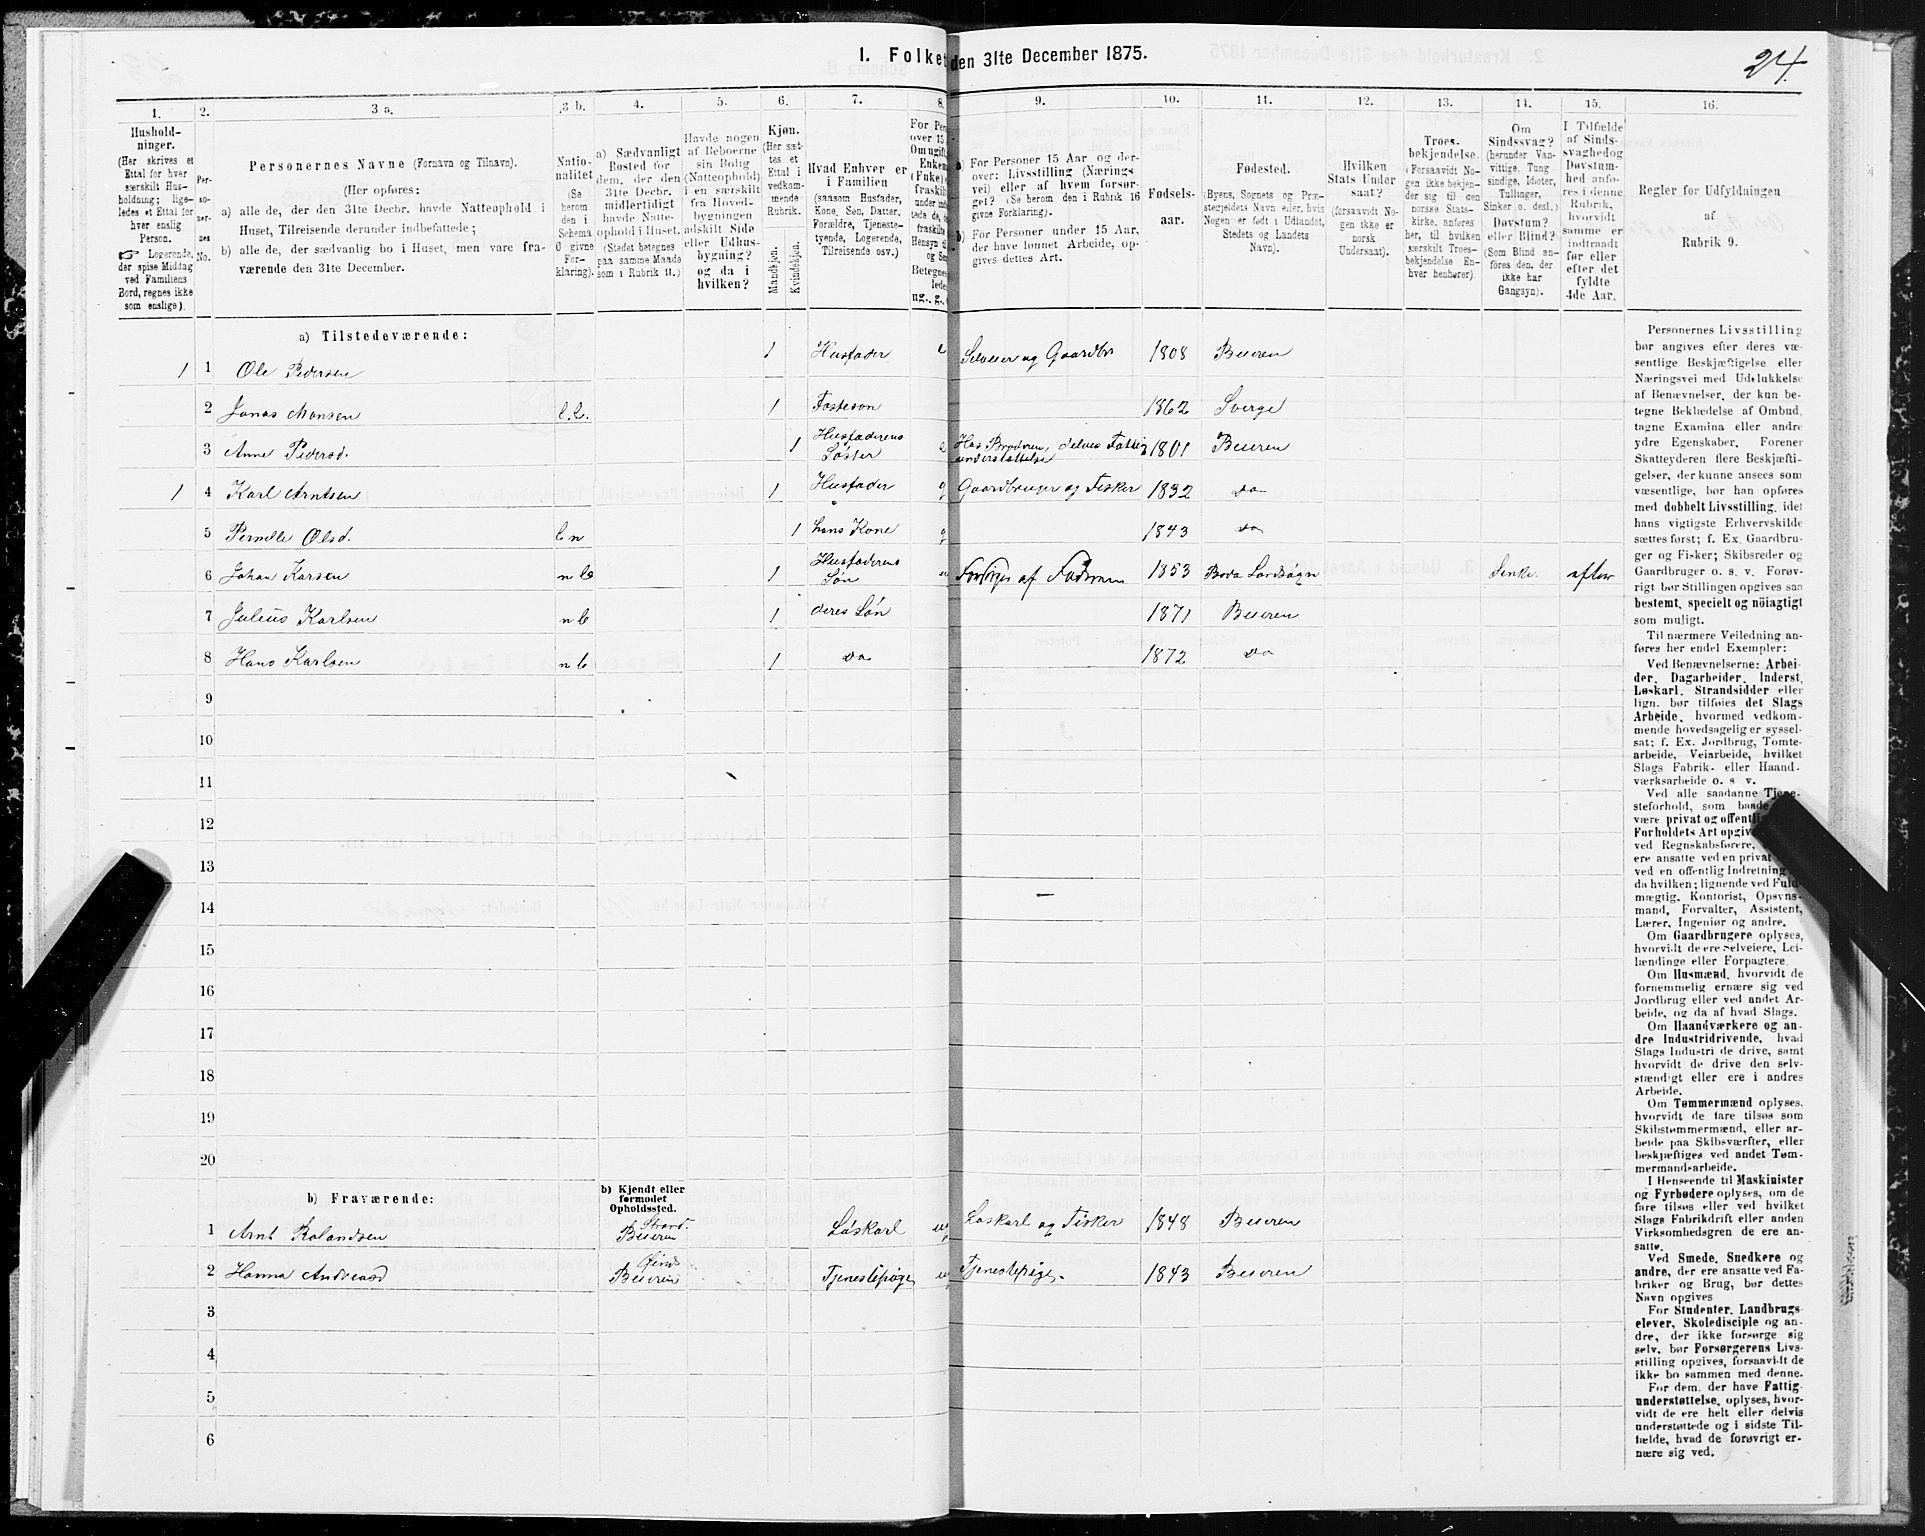 I. Folket den 31te December 1875.
24
1. 2. 3 a. 3 b. 4. 5. 6. 7. 8. 9. 10. 11. 12. 13. 14. 15. 16.
Hushold-
ninger.
(Her skrives et
Ettal for hver
særskilt Hus-
holdning; lige-
ledes et Ettal for
hver enslig
Person.
Logerende,
der spise Middag
ved Familiens
Bord, regnes ikke
som enslige).
Per-
so-
ner-
nes
No.
Personernes Navne (Fornavn og Tilnavn).
(Her opføres:
a) alle de, der den 31te Decbr. havde Natteophold i
Huset, Tilreisende derunder indbefattede;
b) alle de, der sædvanlig bo i Huset, men vare fra-
værende den 31te December.
Natio-
nalitet
(Se
herom
den i
Schema
O givne
For-
klaring).
a) Sædvanligt
Bosted for
dem, der den
31te Decbr.
midlertidigt
havde Natte-
ophold i Huset.
(Stedet betegnes
paa samme Maade
som i Rubrik 11.)
Havde nogen
af Beboerne
sin Bolig
(Natteophold)
i en særskilt
fra Hoved-
bygningen
adskilt Side
eller Udhus-
bygning?
og da i
hvilken?
Kjøn.
(Her sæt-
tes et
Ettal i
vedkom-
mende
Rubrik.
Mandkjøn.
Kvindekjøn.
Hvad Enhver er
i Familien
(saasom Husfader,
Kone, Søn, Datter,
Forældre, Tjeneste-
tyende, Logerende,
Tilreisende osv.)
For Per
over 15
Om ugift,
Enkem
(Fuke)
fraskilt
under ind
tede de,
fraskilte
Hensyn til
og Se
Betegnes
lede
ug., g.,
a) For Personer 15 Aar og der-
over: Livsstilling (Nærings
vei) eller af hvem forsør-
get? (Se herom den i Rubrik 16
givne Forklaring).
b) For Personer under 15 Aar,
der have lønnet Arbeide, op-
gives dettes Art.
Fødsels-
aar.
Fødested.
(Byens, Sognets og Præ-
stegjeldets Navn eller, hvis
Nogen er født i Udlandet,
Stedets og Landets
Navn).
Hvilken
Stats Under
saat?
(forsaavidt No-
gen ikke er
norsk
Undersaat).
Troes-
bekjendelse.
(Forsaavidt No-
gen ikke bekjen-
der sig til den
norske Stats-
kirke, anføres
her, til hvilken
særskilt Troes-
bekjendelse En-
hver henhører).
Om
Sindssvag?
(herunder Van-
vittige, Tung
sindige, Idioter,
Tullinger,
Sinker o. desl.)
Døvstum?
eller Blind?
(Som Blind an-
føres den, der
ikke har
Gangsyn).
I Tilfælde
af Sinds-
svaghed og
Døvstum-
hed anfø-
res i denne
Rubrik,
hvorvidt
samme er
indtraadt
før eller
efter det
fyldte
4de Aar.
Regler for Udfyldningen
af
Rubrik 9.
a) Tilstedeværende:
1 1 Ole Pedersen 1 Husfader e Selveier og Gaardbr 1808 Beieren
2 Jonas Monsen l.l. 1 Fosterson 1862 Sverge
3 Anne Pedersd. 1 Husfaderens Søster e Hos Brodren, delvis Fattig understøttelse 1801 Beieren
1 4 Karl Arntsen 1 Husfader g Gaardbruger og Fisker 1832 do
5 Pernille Olsd. l n 1 hans Kone g 1843 do
6 Johan Karsen n l 1 Husfaderens Søn u Forsørges af Faderen 1853 Bodø Landsogn Sinke. efter
7 Julius Karlsen n l 1 deres Søn 1871 Beieren
8 Hans Karlsen n l 1 do 1872 do
9
10
11
12
13
14
15
16
17
18
19
20
b) Fraværende:
b) Kjendt eller
formodet
Opholdssted.
1 Arnt Rolandsen Strand. Beieren Løskarl ug Løskarl og Fisker 1848 Beieren
2 Hanna Andreasd Beieren Tjenestepige ug Tjenestepige. 1843 Beieren
3
4
5
6
Personernes Livsstilling
bør angives efter deres væ-
sentlige Beskjæftigelse eller
Næringsvei med Udelukkelse
af Benævnelser, der kun be-
tegne Beklædelse af Ombud,
tagne Examina eller andre
ydre Egenskaber. Forener
Skatteyderen flere Beskjæfti-
gelser, der kunne ansees som
væsentlige, bør han opføres
med dobbelt Livsstilling, idet
hans vigtigste Erhvervskilde
sættes først; f. Ex. Gaardbru-
ger og Fisker; Skibsreder og
Gaardbruger o. s. v. Forøv-
rigt bør Stillingen opgives saa
bestemt, specielt og nöiagtigt
som muligt.
Til nærmere Veiledning an-
føres her endel Exempler:
Ved Benævnelserne: Arbei-
der, Dagarbeider, Inderst,
Løskarl, Strandsidder eller
lign. bør tilføies det Slags
Arbeide, hvormed vedkom-
mende hovedsagelig er syssel-
sat; f. Ex. Jordbrug, Tomte-
arbeide, Veiarbeide, hvilket
Slags Fabrik- eller Haand-
værksarbeide o. s v.
Ved alle saadanne Tjene-
steforhold, som baade
være privat og offentlig
Forholdets Art opgiv
ved Regnskabsførere,
ere ansatte ved en privat
ved en offentlig Indretning
da hvilken; lignende ved Fuld-
mægtig, Kontorist, Opsyns-
mand, Forvalter, Assistent,
Lærer, Ingeniør og andre.
Om Gaardbrugere oplyses,
hvorvidt de ere Selveiere, Lei-
lændinge eller Forpagtere.
Om Husmænd, hvorvidt de
fornemmelig ernære sig ved
Jordbrug eller ved andet Ar-
beide, og da af hvad Slags.
Om Haandværkere og an-
dre Industridrivende, hvad
Slags Industri de drive, samt
hvorvidt de drive den selv-
stændigt eller ere i andres
Arbeide.
Om Tømmermænd oplyses,
hvorvidt de fare tilsøs som
Skibstømmermænd, eller ar-
beide paa Skibsværfter, eller
beskjæftiges ved andet Tøm-
mermandsarbeide.
I Henseende til Maskinister
og Fyrbødere oplyses, om de
fare tilsøs eller ved hvilket
Slags Fabrikdrift eller anden
Virksomhedsgren de ere an-
satte.
Ved Smede, Snedkere og
andre, der ere ansatte ved Fa-
briker og Brug, bør dettes
Navn opgives
For Studenter, Landbrugs-
elever, Skoledisciple og an-
dre, der ikke forsørge sig
selv, bør Forsørgerens Livs-
stilling opgives, forsaavidt de
ikke bo sammen med denne.
For dem, der have Fattig-
understøttelse, oplyses, hvor-
vidt de ere helt eller delvis
understøttede og i sidste Til-
fælde, hvad de forøvrigt er-
nære sig ved.